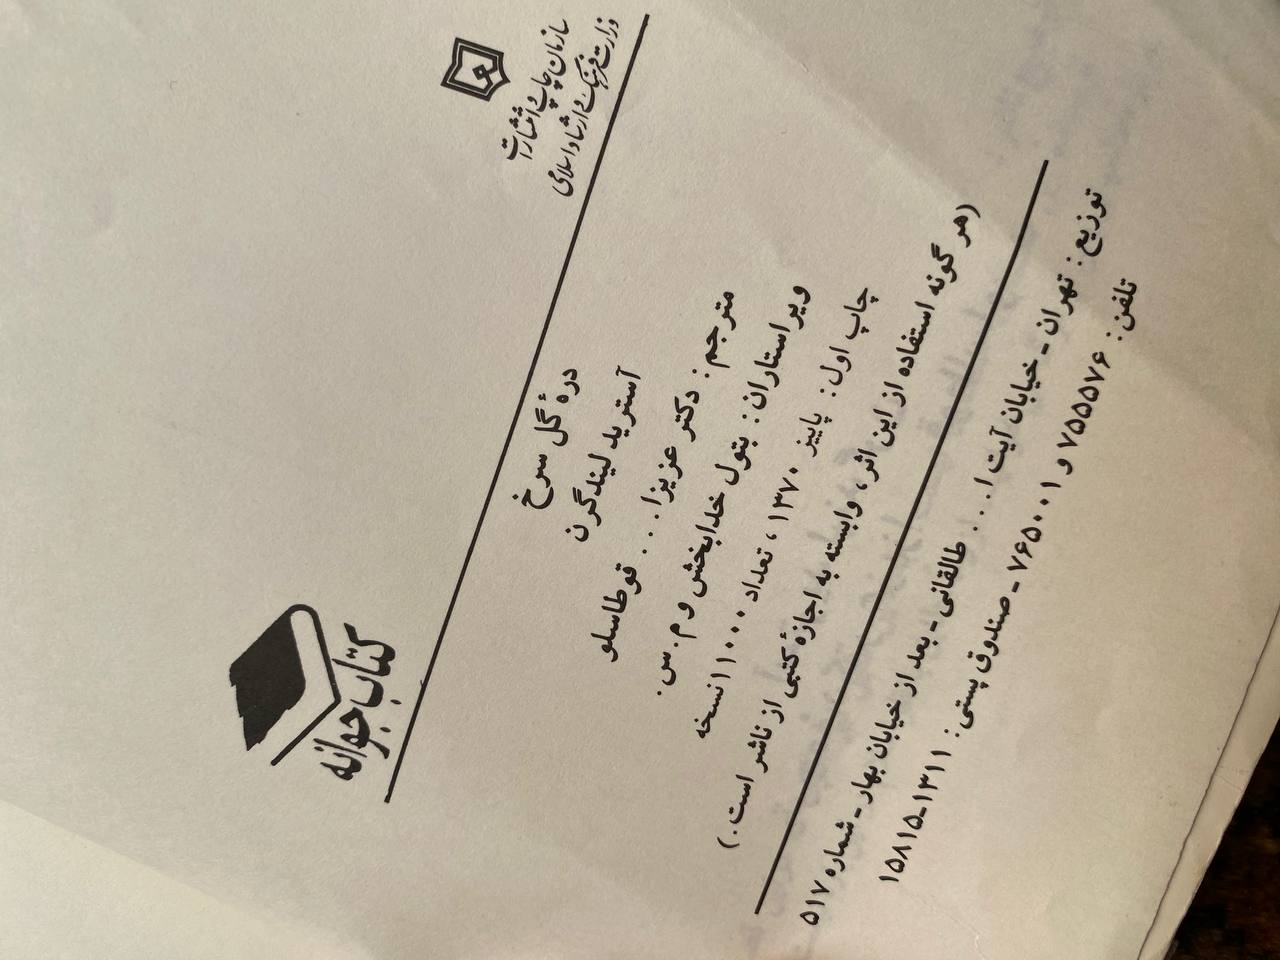 سازمان چاپ و انتشارات
وزارت فرهنگ و ارشاد اسلامی
کتاب جوانه
درهٔ گل سرخ
آسترید لیندگرن
مترجم: دکتر عزیزا... قوطاسلو
ویراستاران: بتول خدابخش و م. س.
چاپ اول: پاییز ۱۳۷۰، تعداد ۱۱۰۰۰ نسخه
(هر گونه استفاده از این اثر، وابسته به اجازهٔ کتبی از ناشر است.)
توزیع: تهران ـ خیابان آیت ا... طالقانی ـ بعد از خیابان بهار ـ شماره ۵۱۷
تلفن: ۷۵۵۵۷۶ و ۷۶۵۰۰۱ ـ صندوق پستی: ۱۳۱۱ـ۱۵۸۱۵